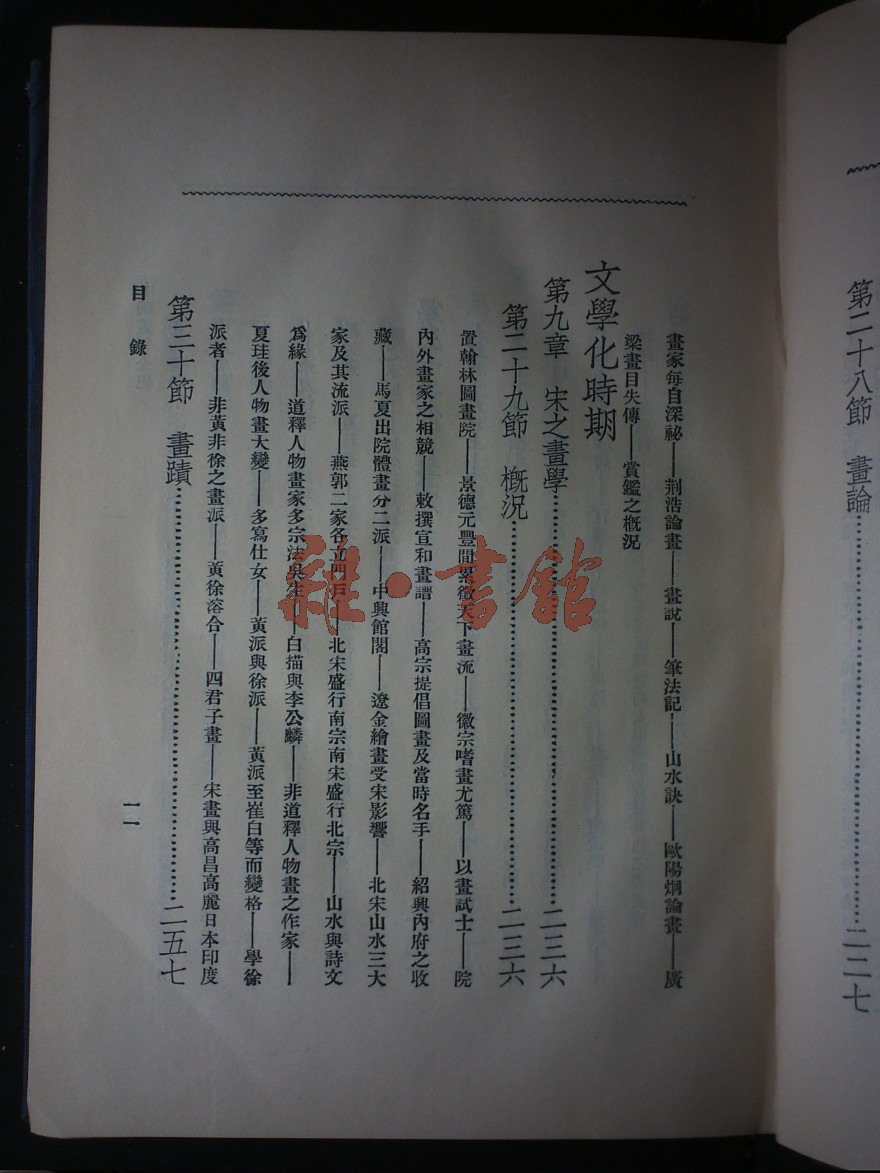 第二十八節　畫論……二二七
畫家每自深祕——荆浩論畫——畫說——筆法記——山水訣——歐陽炯論畫——廣
梁畫目失傳——賞鑑之概況
文學化時期
第九章　宋之畫學……二三六
第二十九節　概況……二三六
置翰林圖畫院——景德元豐間羅徵天下畫流——徽宗嗜畫尤篤——以畫試士——院
內外畫家之相競——敕撰宣和畫譜——高宗提倡圖畫及當時名手——紹興內府之收
藏——馬夏出院體畫分二派——中興館閣——遼金繪畫受宋影響——北宋山水三大
家及其流派——燕郭二家各立門戶——北宋盛行南宗南宋盛行北宗——山水與詩文
爲緣——道釋人物畫家多宗法吳生——白描與李公麟——非道釋人物畫之作家——
夏珪後人物畫大變——多寫仕女——黃派與徐派——黃派至崔白等而變格——學徐
派者——非黃非徐之畫派——黃徐溶合——四君子畫——宋畫與高昌高麗日本印度
第三十節　畫蹟……二五七
目錄
一一
雜·書館